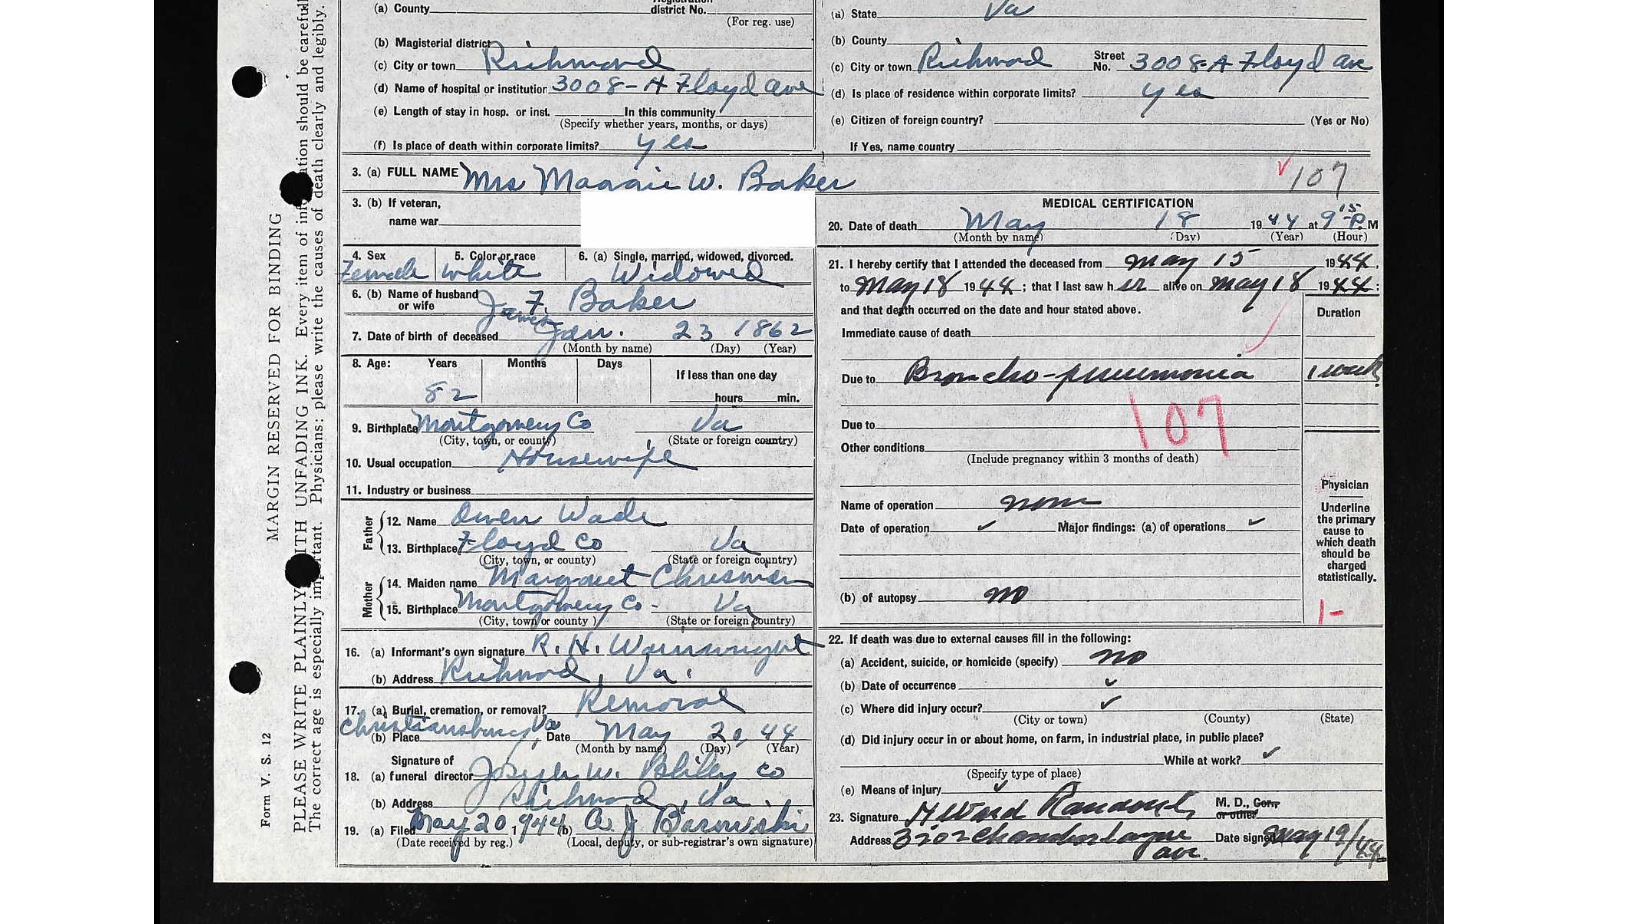 (a) County
district No.
(For reg. use)
(b) Magisterial district
(c) City or town Richmond
(d) Name of hospital or institution 3008-A Floyd ave
(e) Length of stay in hosp. or inst. In this community
(Specify whether years, months, or days)
(f) Is place of death within corporate limits? yes
(a) State Va
(b) County
(c) City or town Richmond Street No. 3008-A Floyd ave
(d) Is place of residence within corporate limits? yes
(e) Citizen of foreign country? (Yes or No)
If Yes, name country
3. (a) FULL NAME Mrs Maggie W. Baker
107
3. (b) If veteran,
name war
4. Sex 5. Color or race 6. (a) Single, married, widowed, divorced.
Female white Widowed
6. (b) Name of husband or wife James F. Baker
7. Date of birth of deceased Jan. 23 1862
(Month by name) (Day) (Year)
8. Age: Years Months Days If less than one day
82 hours min.
9. Birthplace Montgomery Co Va
(City, town, or county) (State or foreign country)
10. Usual occupation Housewife
11. Industry or business
Father
12. Name Owen Wade
13. Birthplace Floyd Co Va
(City, town, or county) (State or foreign country)
Mother
14. Maiden name Margaret Chrisman
15. Birthplace Montgomery Co - Va
(City, town or county) (State or foreign country)
16. (a) Informant's own signature R. H. Wainwright
(b) Address Richmond, Va.
17. (a) Burial, cremation, or removal? Removal
(b) Place Christiansburg Va, Date May 20, 44
(Month by name) (Day) (Year)
Signature of
18. (a) funeral director Joseph W. Bliley Co
(b) Address Richmond, Va.
19. (a) Filed May 20, 1944 (b)
(Date received by reg.) (Local, deputy, or sub-registrar's own signature)
MEDICAL CERTIFICATION
20. Date of death May 18 1944 at 9 15 P.M
(Month by name) (Day) (Year) (Hour)
21. I hereby certify that I attended the deceased from May 15 1944,
to May 18 1944; that I last saw her alive on May 18 1944;
and that death occurred on the date and hour stated above.
Duration
Immediate cause of death
Due to Broncho-pneumonia 1 week
107
Due to
Other conditions
(Include pregnancy within 3 months of death)
Name of operation none
Date of operation ✓ Major findings: (a) of operations ✓
(b) of autopsy no
Physician
Underline
the primary
cause to
which death
should be
charged
statistically.
1-
22. If death was due to external causes fill in the following:
(a) Accident, suicide, or homicide (specify) no
(b) Date of occurrence ✓
(c) Where did injury occur? ✓
(City or town) (County) (State)
(d) Did injury occur in or about home, on farm, in industrial place, in public place?
While at work? ✓
(Specify type of place)
(e) Means of injury ✓
23. Signature M. D., Coro or other
Address ave. Date signed May 19/44
MARGIN RESERVED FOR BINDING
PLEASE WRITE PLAINLY WITH UNFADING INK. Every item of information should be carefull
The correct age is especially important. Physicians: please write the causes of death clearly and legibly.
Form V. S. 12